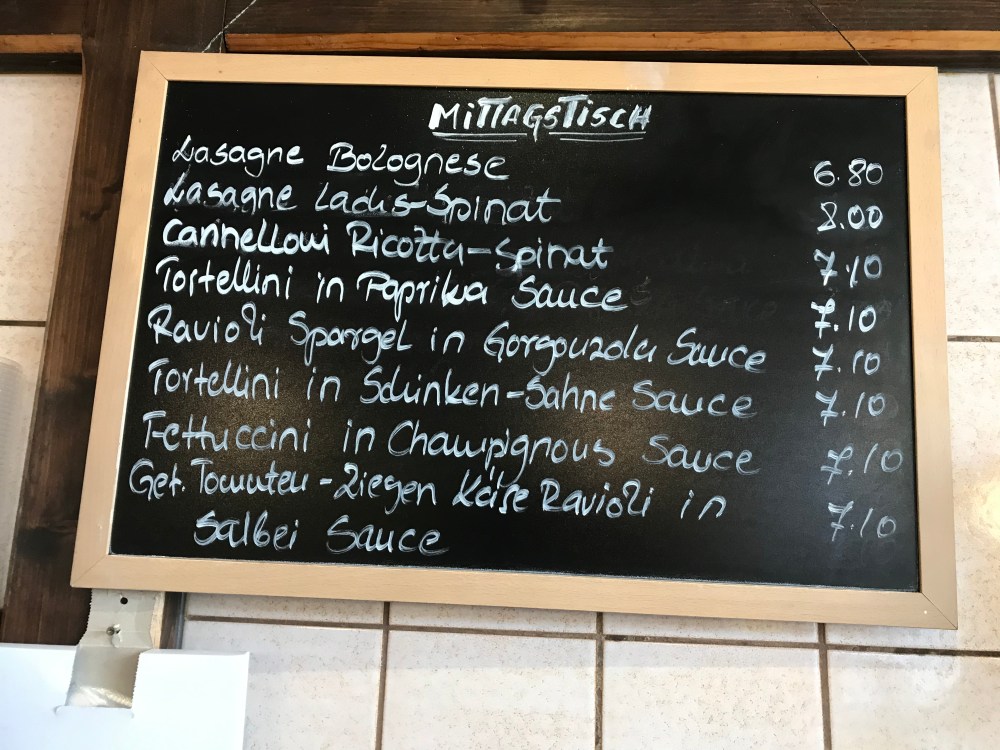 MITTAGSTISCH
Lasagne Bolognese 6.80
Lasagne Lachs-Spinat 8.00
Cannelloni Ricotta-Spinat 7.10
Tortellini in Paprika Sauce 7.10
Ravioli Spargel in Gorgonzola Sauce 7.10
Tortellini in Schinken-Sahne Sauce 7.10
Fettuccini in Champignons Sauce 7.10
Get. Tomaten-Ziegen Käse Ravioli in 7.10
Salbei Sauce